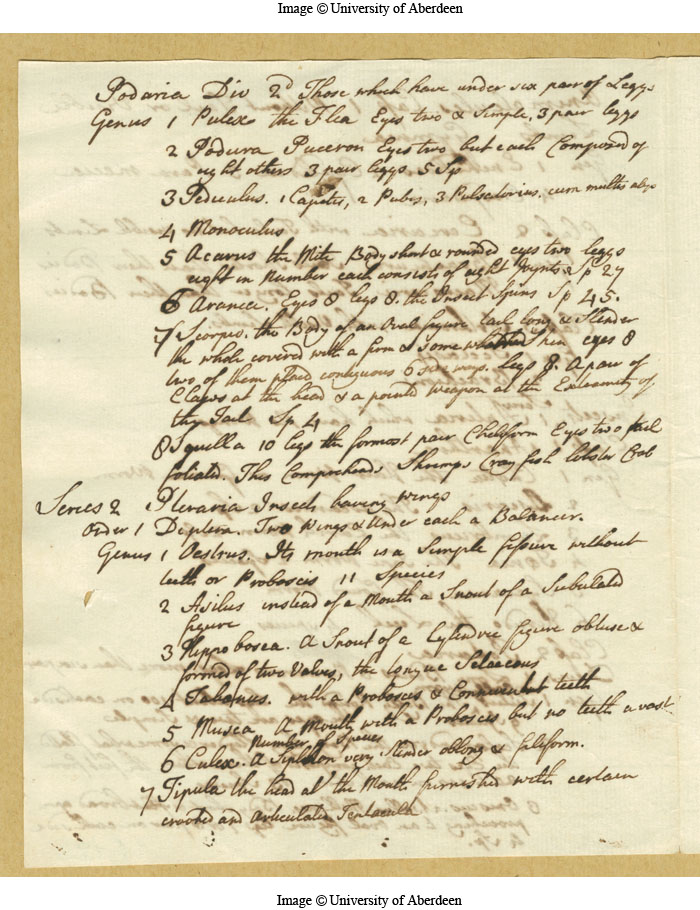 Image © University of Aberdeen
Podaria Div 2d Those which have under six pair of Leggs
Genus 1 Pulex the Flea Eyes two & Simple, 3 pair leggs
2 Podura Puceron Eyes two but each Composed of
eight others 3 pair leggs. 5 Sp
3 Pediculus. 1 Capitis, 2 Pubis, 3 Pulsatorius. cum multis
4 Monoculus
5 Acarus the Mite Body short & rounded eyes two leggs
eight in Number each consists of eight Joynts Sp 27
6 Aranea. Eyes 8 legs 8. the Insect Spins Sp 45.
7 Scorpio. the Body of an Oval figure tail long & Slender
the whole covered with a firm & some Skin eyes 8
two of them placed contiguous 6 legs 8. A pair of
Claws at the head & a pointed weapon at the Extremity of
the Tail Sp 4
8 Squilla 10 legs the formost pair Cheliform Eyes two tail
foliated. This Comprehends Shrimps Crayfish lobster Crab
Series 2 Pteraria Insects having wings
Order 1 Diptera. Two Wings & Under each a Balancer.
Genus 1 Oestrus. Its mouth is a Simple fissure without
teeth or Proboscis 11 Species
2 Asilus instead of a Mouth a Snout of a Subulated
figure
3 Hippobosca. A Snout of a Cylindric figure obtuse &
formed of two Valves, the tongue Setaceous
4 Tabanus. with a Proboscis & Connivent teeth
5 Musca A Mouth with a Proboscis but no teeth a vast
Number of Species
6 Culex. A Siphon very slender oblong & filiform.
7 Tipula the head at the Mouth furnished with certain
crooked and articulated Tentacula
Image © University of Aberdeen